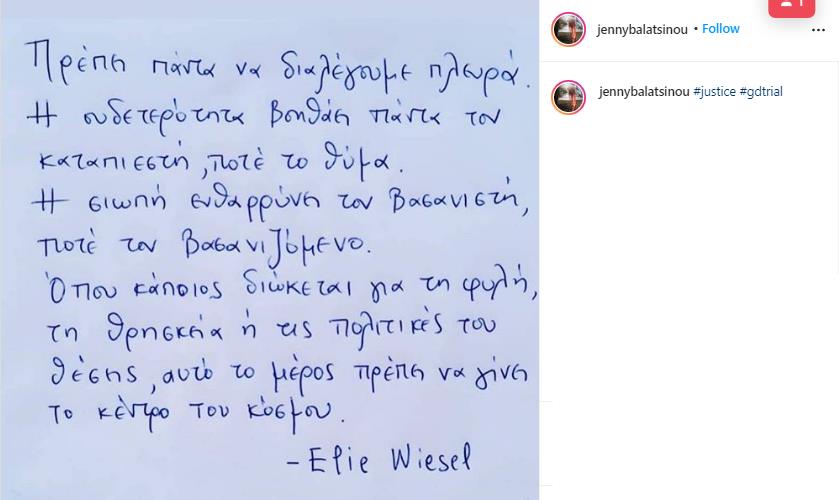 Πρέπει πάντα να διαλέγουμε πλευρά.
Η ουδετερότητα βοηθάει πάντα τον
καταπιεστή, ποτέ το θύμα.
Η σιωπή ενθαρρύνει τον βασανιστή,
ποτέ τον βασανιζόμενο.
Όπου κάποιος διώκεται για τη φυλή,
τη θρησκεία ή τις πολιτικές του
θέσεις, αυτό το μέρος πρέπει να γίνει
το κέντρο του κόσμου.
- Elie Wiesel
1
jennybalatsinou • Follow
...
jennybalatsinou #justice #gdtrial